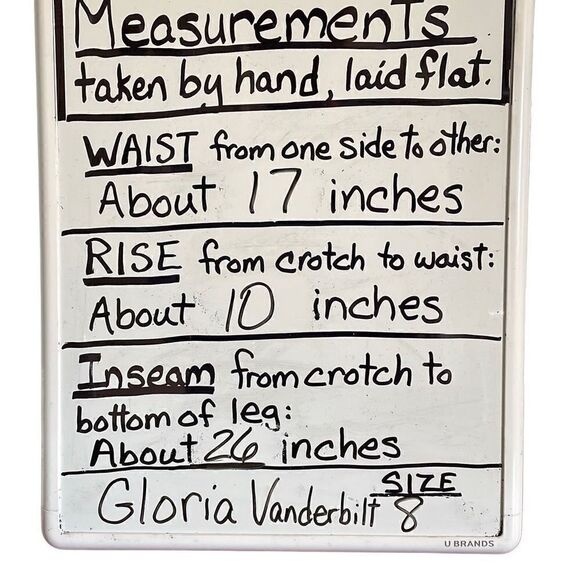 Measurements
taken by hand, laid flat.
WAIST from one side to other:
About 17 inches
RISE from crotch to waist:
About 10 inches
Inseam from crotch to
bottom of leg:
About 26 inches
SIZE
Gloria Vanderbilt 8
U BRANDS